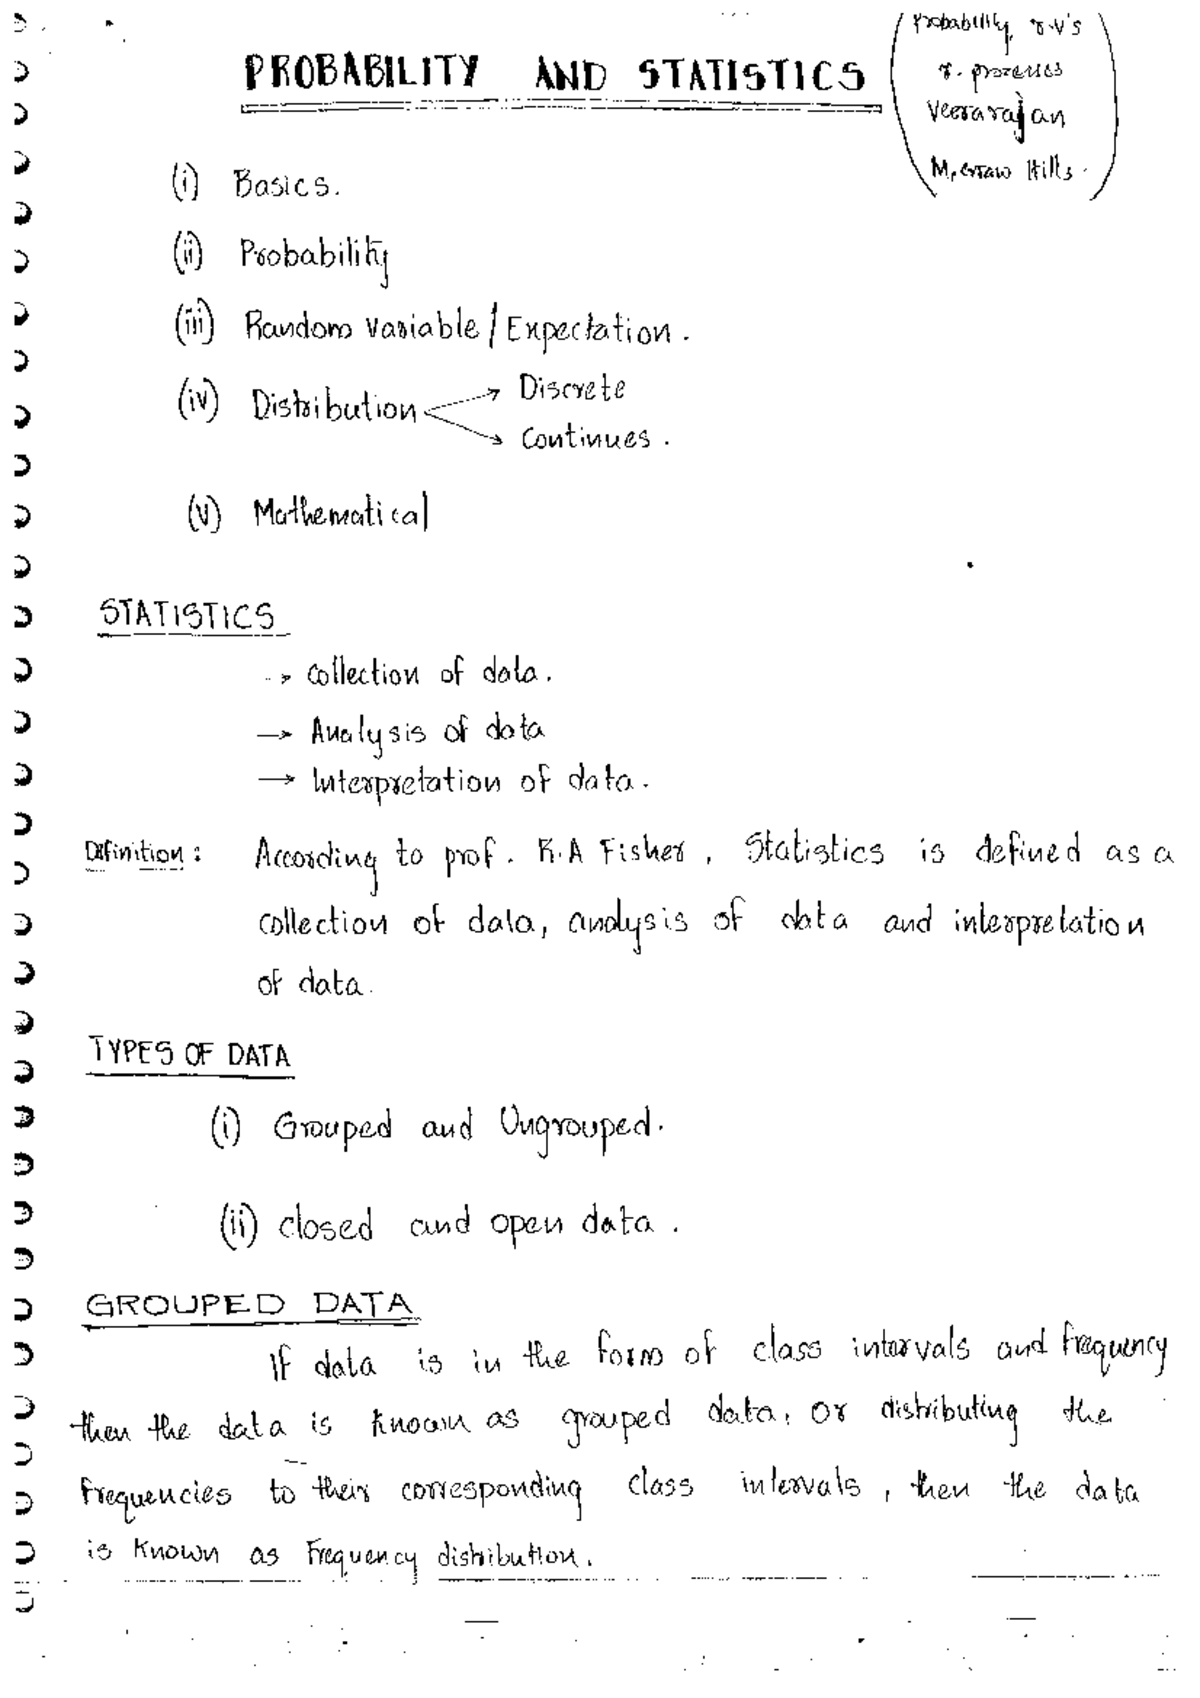 Probability, r.v's
r. processes
Veerarajan
Mc Graw Hills.
PROBABILITY AND STATISTICS
(i) Basics.
(ii) Probability
(iii) Random variable / Expectation.
(iv) Distribution → Discrete
→ Continues.
(v) Mathematical
STATISTICS
→ Collection of data.
→ Analysis of data
→ Interpretation of data.
Definition : According to prof. R.A Fisher, Statistics is defined as a
collection of data, analysis of data and interpretation
of data.
TYPES OF DATA
(i) Grouped and Ungrouped.
(ii) closed and open data.
GROUPED DATA
If data is in the form of class intervals and frequency
then the data is known as grouped data. Or distributing the
frequencies to their corresponding class intervals, then the data
is known as Frequency distribution.